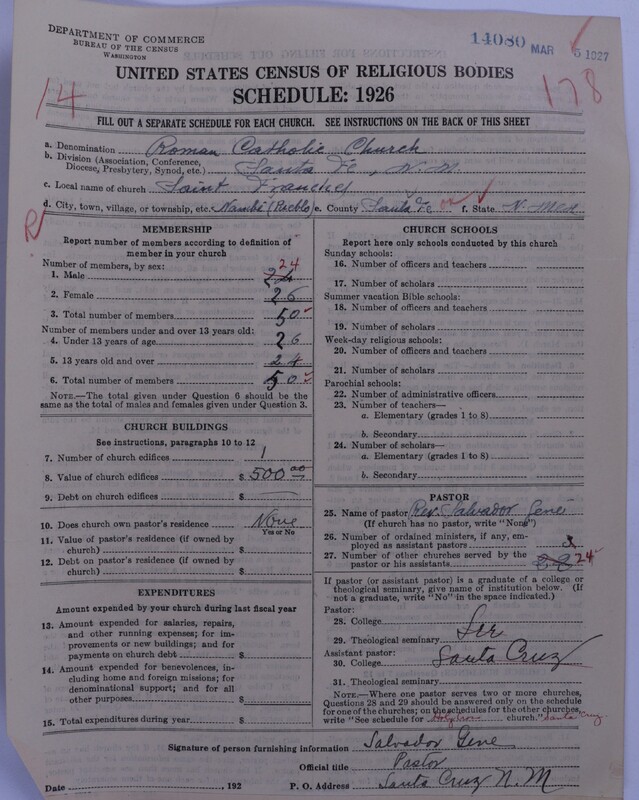 DEPARTMENT OF COMMERCE
BUREAU OF THE CENSUS
WASHINGTON
14080 MAR 5 1927
UNITED STATES CENSUS OF RELIGIOUS BODIES
SCHEDULE: 1926
14
178
FILL OUT A SEPARATE SCHEDULE FOR EACH CHURCH. SEE INSTRUCTIONS ON THE BACK OF THIS SHEET
a. Denomination Roman Catholic Church
b. Division (Association, Conference, Diocese, Presbytery, Synod, etc.) Santa Fe, N.M.
c. Local name of church Saint Franches
d. City, town, village, or township, etc. Nambé (Pueblo) e. County Santa Fe f. State N. Mex
R
MEMBERSHIP
Report number of members according to definition of
member in your church
Number of members, by sex:
1. Male 24 24
2. Female 26
3. Total number of members 50
Number of members under and over 13 years old:
4. Under 13 years of age 26
5. 13 years old and over 24
6. Total number of members 50
NOTE.—The total given under Question 6 should be
same as the total of males and females given under Question 3.
CHURCH BUILDINGS
See instructions, paragraphs 10 to 12
7. Number of church edifices 1
8. Value of church edifices $ 500 00
9. Debt on church edifices $
10. Does church own pastor's residence None
Yes or No
11. Value of pastor's residence (if owned by
church) $
12. Debt on pastor's residence (if owned by
church) $
EXPENDITURES
Amount expended by your church during last fiscal year
13. Amount expended for salaries, repairs,
and other running expenses; for im-
provements or new buildings; and for
payments on church debt $
14. Amount expended for benevolences, in-
cluding home and foreign missions; for
denominational support; and for all
other purposes $
15. Total expenditures during year $
CHURCH SCHOOLS
Report here only schools conducted by this church
Sunday schools:
16. Number of officers and teachers
17. Number of scholars
Summer vacation Bible schools:
18. Number of officers and teachers
19. Number of scholars
Week-day religious schools:
20. Number of officers and teachers
21. Number of scholars
Parochial schools:
22. Number of administrative officers
23. Number of teachers—
a. Elementary (grades 1 to 8)
b. Secondary
24. Number of scholars—
a. Elementary (grades 1 to 8)
b. Secondary
PASTOR
25. Name of pastor Rev. Salvador Gene
(If church has no pastor, write "None")
26. Number of ordained ministers, if any, em-
ployed as assistant pastors
27. Number of other churches served by the
pastor or his assistants 24
If pastor (or assistant pastor) is a graduate of a college or
theological seminary, give name of institution below. (If
not a graduate, write "No" in the space indicated.)
Pastor:
28. College
29. Theological seminary See
Assistant pastor:
30. College Santa Cruz
31. Theological seminary
NOTE.—Where one pastor serves two or more churches,
Questions 28 and 29 should be answered only on the schedule
for one of the churches; on the schedules for the other churches,
write "See schedule for Holy Cross church." Santa Cruz
Signature of person furnishing information Salvador Gene
Official title Pastor
Date , 192 P. O. Address Santa Cruz N. M